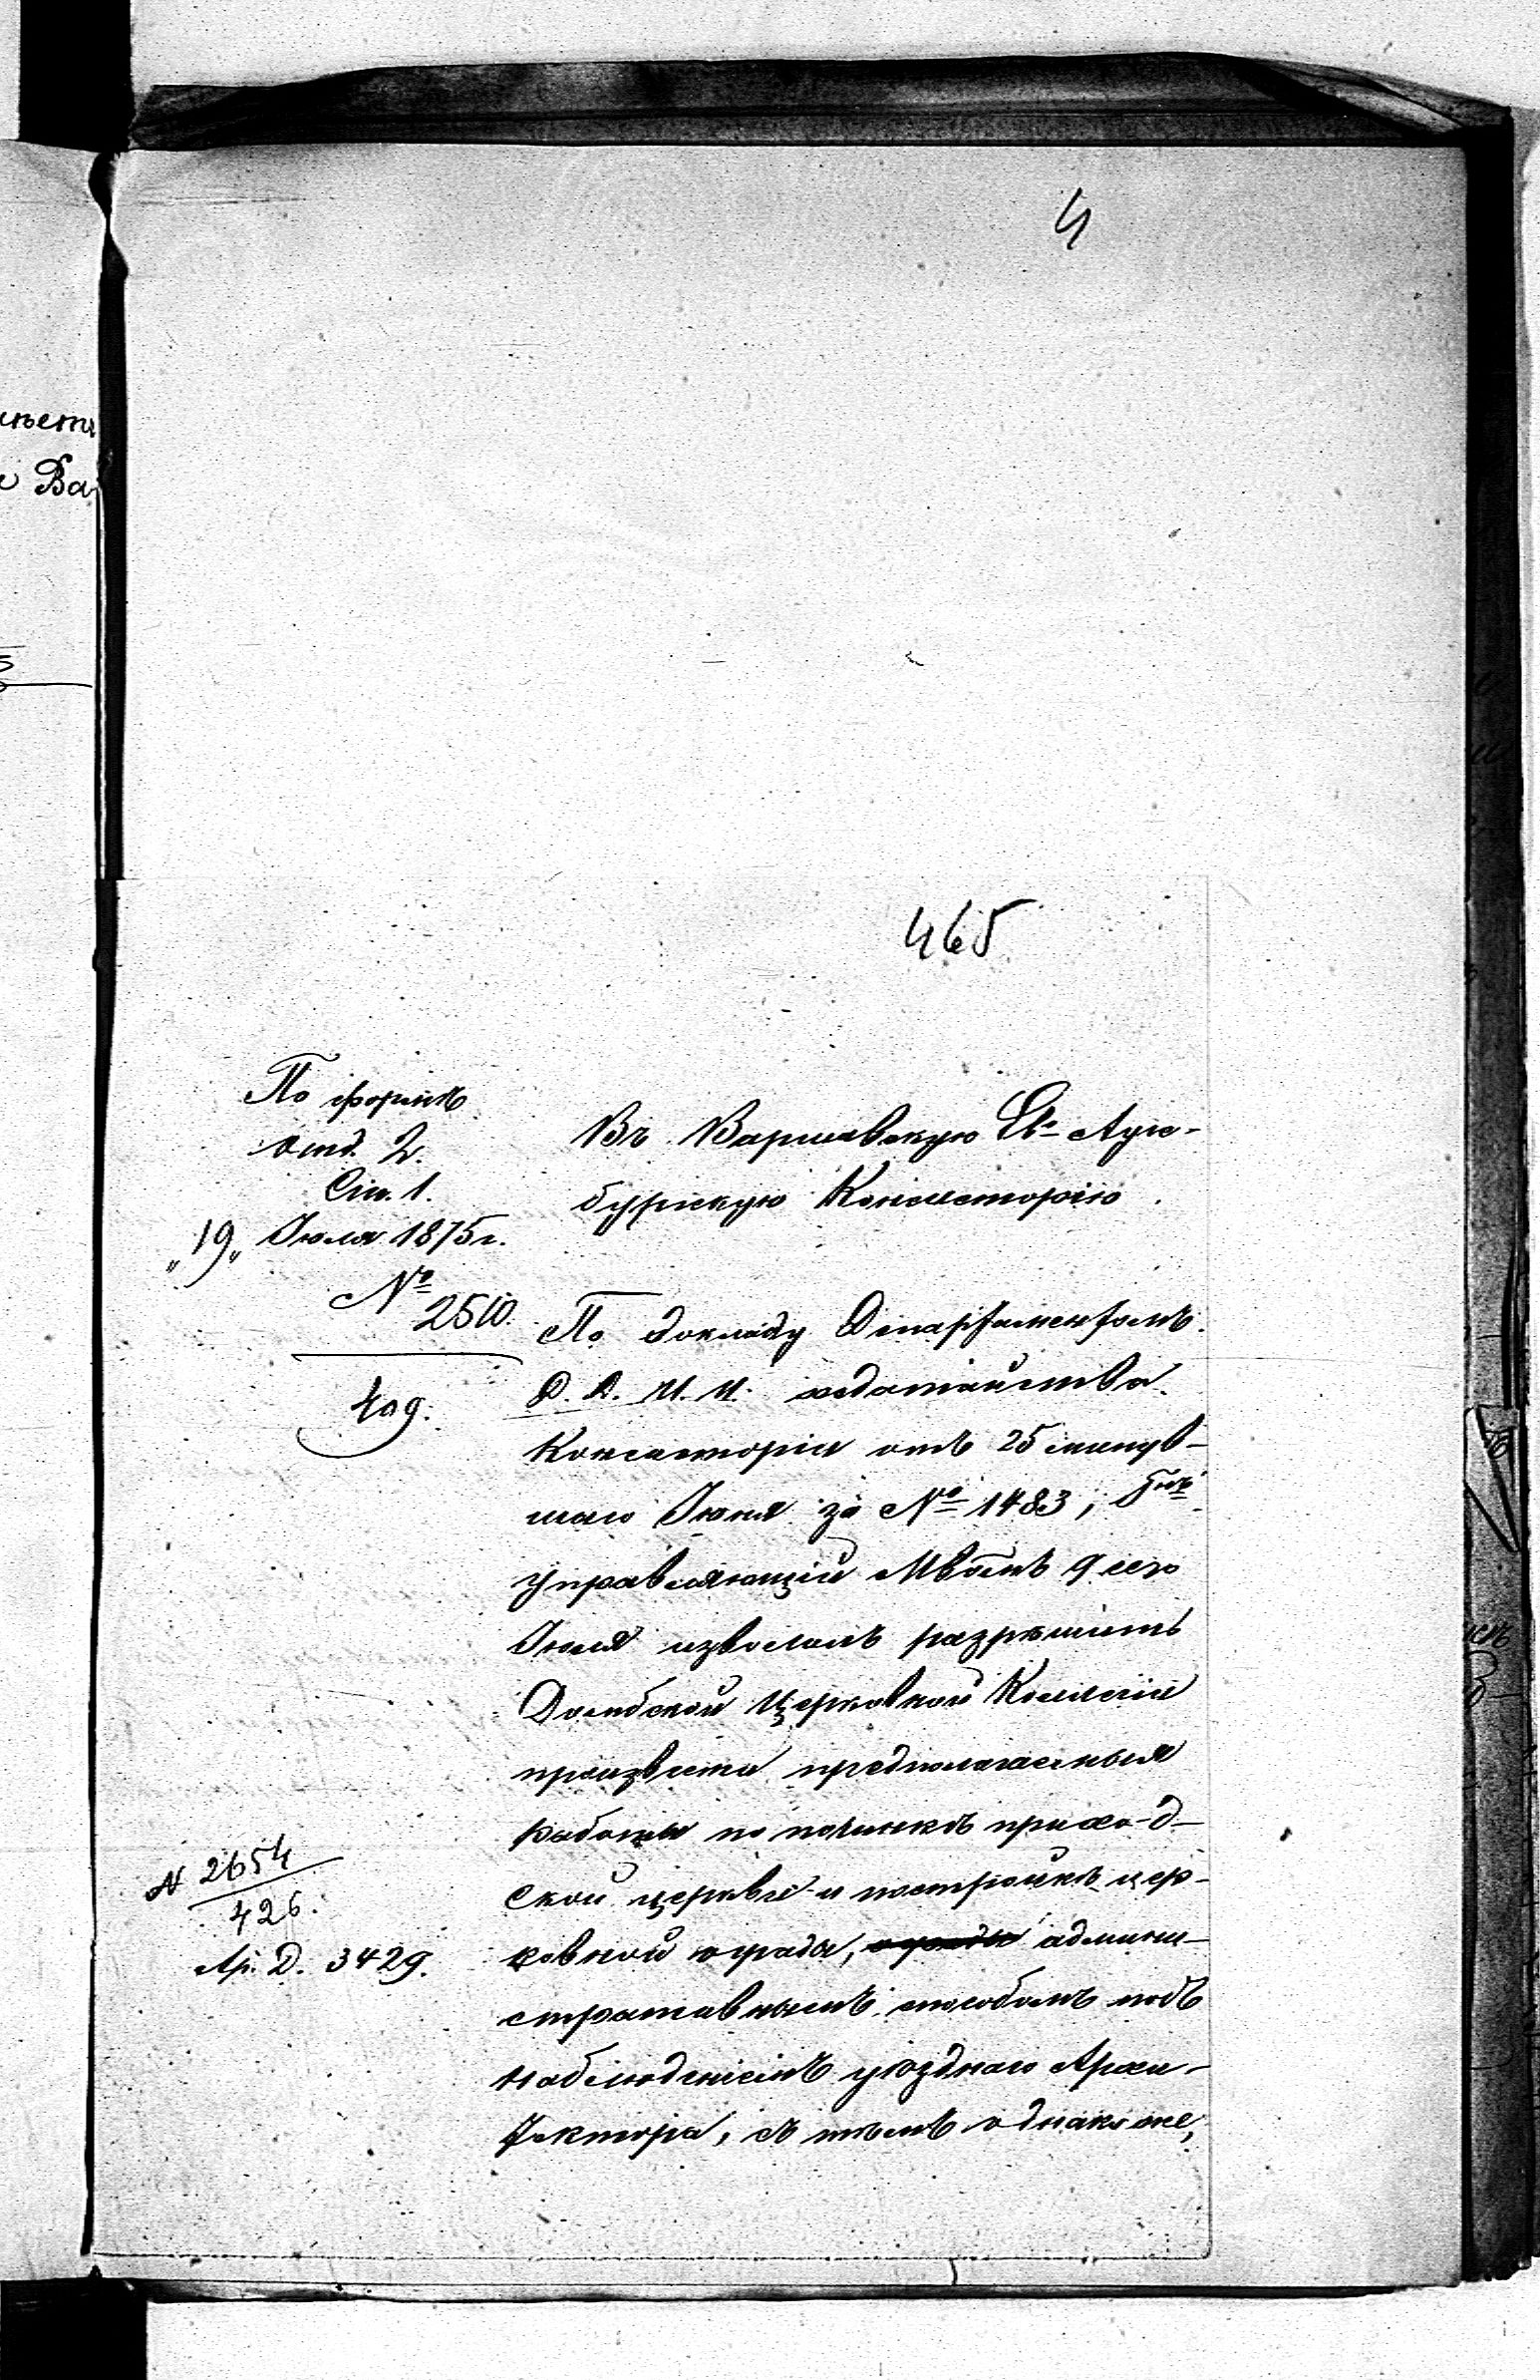 4
465
По формѣ
Отд. 2.
Ст. 1.
"19" Іюля 1875 г.
№ 2510.
409.
Въ Варшавскую Ев. Аугс-
бургскую Консисторію.
По докладу Департаментомъ
Д. Д. И. И. ходатайства
Консисторіи отъ 25 минув-
шаго Іюня за № 1483, Гнъ
Управляющій Мвомъ 9 сего
Іюля изволилъ разрѣшить
Домбской Церковной Коллегіи
произвести предполагаемыя
работы по починкѣ приход-
ской церкви и постройкѣ цер-
ковной ограды, админи-
стративнымъ способомъ подъ
наблюденіемъ уѣзднаго Архи-
тектора, съ тѣмъ однако же,
№ 2654
426.
Ар. Д. 3429.